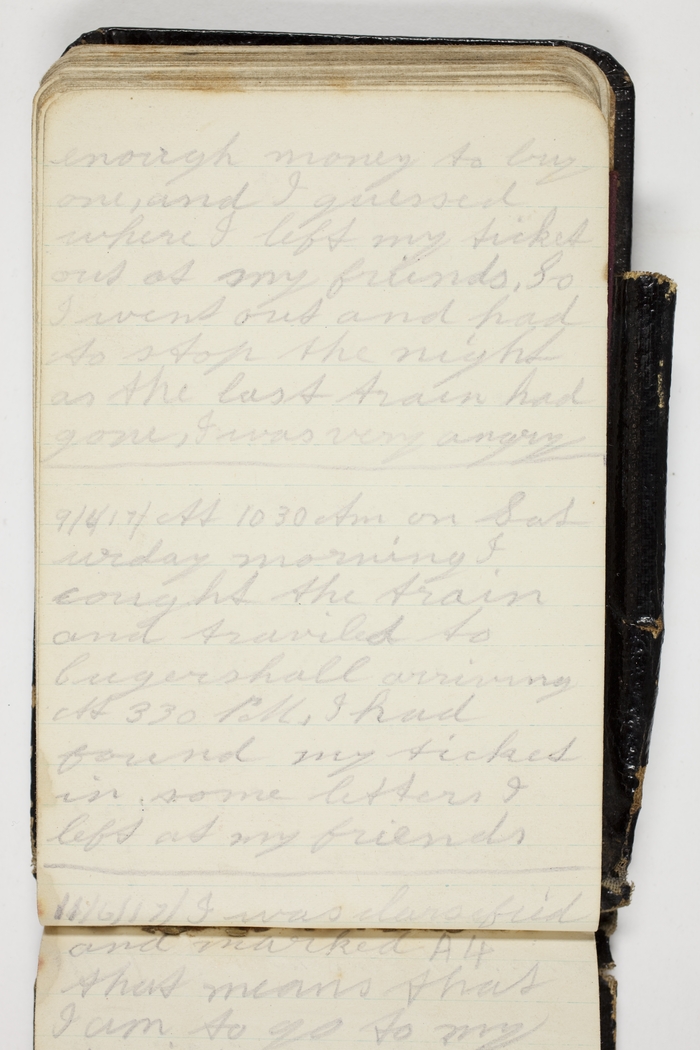 enough money to buy
one, and I guessed
where I left my ticket
out at my friends, So
I went out and had
to stop the night
as the last train had
gone, I was very angry
At 10 30 Am on Sat
urday morning I
cought the train
and traviled to
lugershall arriving
At 330 P.M, I had
found my ticket
in some letters I
left at my friends
I was classified
and marked A4
that means that
I am to go to my